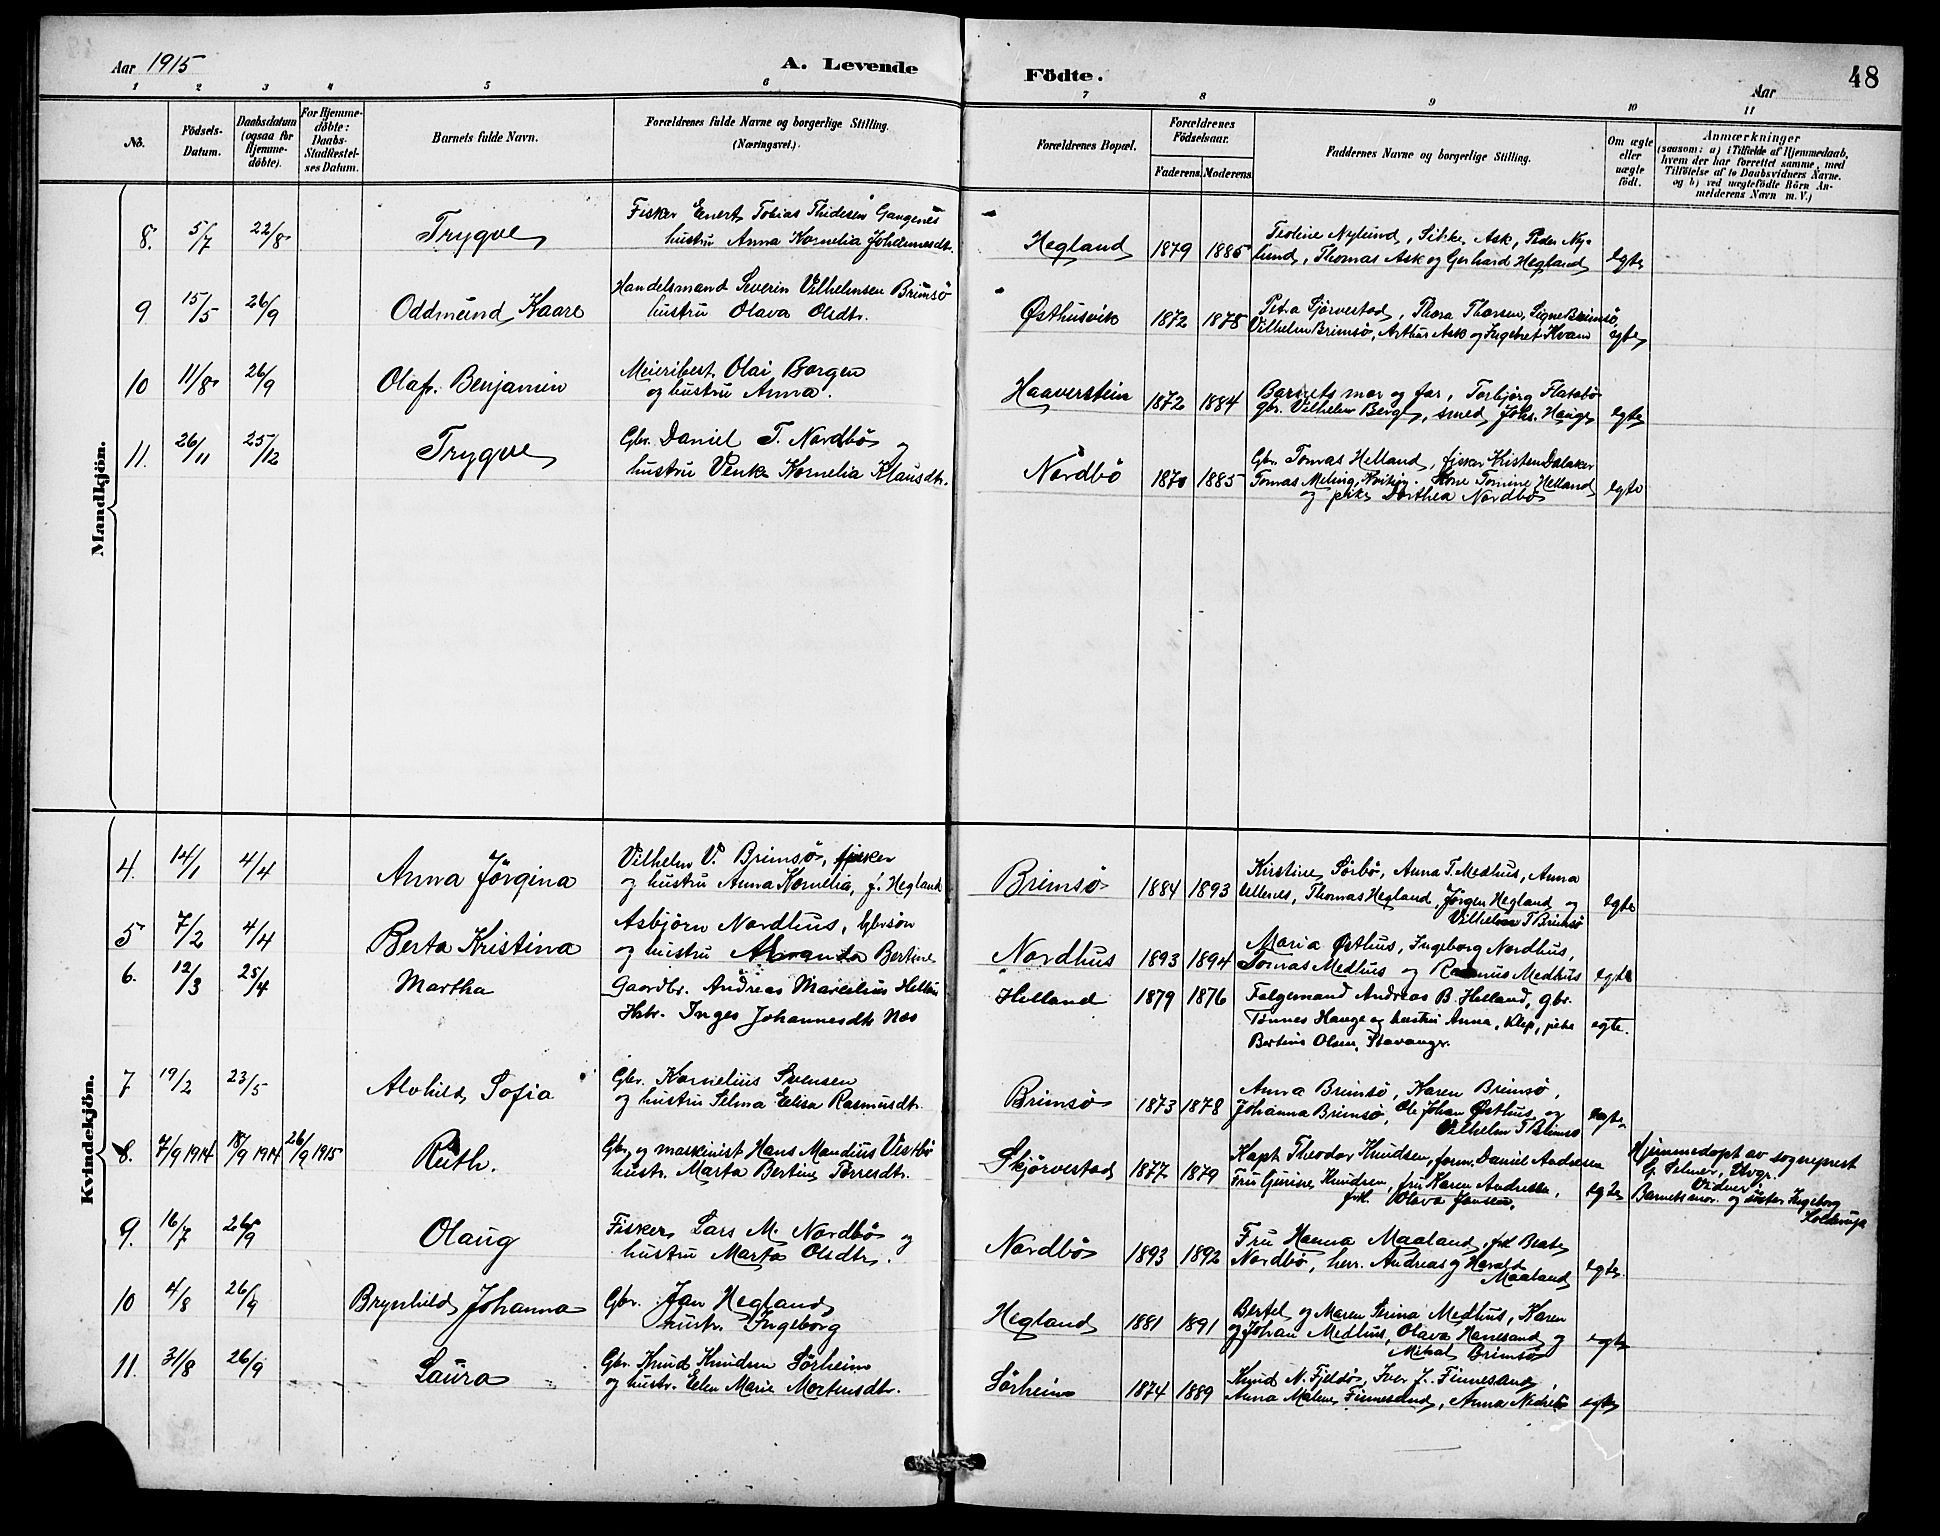 Aar 1915
A. Levende Födte.
Aar
48
1 2 3 4 5 6 7 8 9 10 11
No.
Födsels-Datum.
Daabsdatum (ogsaa for Hjemme-döbte).
For Hjemme-döbte: Daabs-Stadfæstel-ses Datum.
Barnets fulde Navn.
Forældrenes fulde Navne og borgerlige Stilling.
(Næringsvei.)
Forældrenes Bopæl.
Forældrenes Födselsaar.
Faderens. Moderens.
Faddernes Navne og borgerlige Stilling.
Om ægte eller uægte födt.
Anmærkninger
(saasom: a) i Tilfælde af Hjemmedaab,
hvem der har forrettet samme, med
Tilföielse af to Daabsvidners Navne.
og b) ved uægtefödte Börn An-
melderens Navn m. V.)
Mandkjön.
8. 5/7 22/8 Trygve
Fisker Enert Tobias Thidesen Gangenes
hustru Anna Kornelia Johannesdt.
Hegland 1879 1885
Teoline Nylund, Sikke Ask, Peder Ny-
lund, Thomas Ask og Gerhard Hegland
egte
9. 15/5 26/9 Oddmund Kaare
Handelsmand Severin Vilhelmsen Brimsö
hustru Olava Olsdtr.
Østhusvik 1872 1878
Petra Sjörvestad, Thora Thorsen, Signe Brimsö,
Vilhelm Brimsö, Arthur Ask og Ingebret Hvam
egte
10 11/8 26/9 Olaf Benjamin
Meieribest. Olai Borgen
og hustru Anna.
Haaverstein 1872 1884
Barnets mor og far, Torbjörg Flatabö
gbr. Vilhelm Berge, smed Johs. Hauge
egte
11. 26/11 25/12 Trygve
Gbr. Daniel T. Nordbö og
hustru Venke Kornelia Klausdtr.
Nordbö 1870 1885
Gbr. Tomas Helland, fisker Kristen Dalaker
Tomas Meling, Hvitsy. Kone Tomine Helland
og pike Dorthea Nordbö
egte
Kvindekjön.
4. 14/1 4/4 Anna Jörgina
Vilhelm V. Brimsö, fisker
og hustru Anna Kornelia, f. Hegland
Brimsö 1884 1893
Kirstine Sörbö, Anna T. Medhus, Anna
Thomas Hegland, Jörgen Hegland og
Vilhelm T Brimsö
egte
5 7/2 4/4 Berta Kristina
Asbjörn Nordhus, Gbrsön
og hustru Amanda Bertine
Nordhus 1893 1894
Maria Østhus, Ingeborg Nordhus,
Tomas Medhus og Rasmus Medhus
egte
6. 12/3 25/4 Martha
Gaardbr. Andreas Marselius Helland
Hstr. Inger Johannesdtr Næs
Helland 1879 1876
Folgemand Andreas B. Helland, gbr.
Tönnes Hauge og hustru Anna, Klep, pike
Bertine Olsen, Stavanger.
egte.
7 19/2 23/5 Alvhild Sofia
Gbr. Kornelius Svensen
og hustru Selma Elisa Rasmusdtr.
Brimsö 1873 1878
Anna Brimsö, Karen Brimsö,
Johanna Brimsö, Ole Johan Østhus og
Vilhelm T Brimsö
egte
8. 7/9 1914 18/9 1914 26/9 1915 Ruth.
Gbr. og maskinist Hans Mandius Vestbö
hustr. Marta Bertine Torresdtr.
Skjörvestad 1877 1879
Kapt. Theodor Knudsen, form. Daniel Andresen
Fru Gurine Knudsen, fru Karen Andresen,
frk. Olava Jansen.
egte
Hjemmedöpt av sogneprest
G. Selmer, Stvgr.
Vidner:
Barnets mor og söster Ingeborg
9. 16/7 26/9 Olaug
Fisker Lars M. Nordbö og
hustru Marta Olsdtr.
Nordbö 1893 1892
Fru Hanna Maaland, frk Beate
Nordbö, herr. Andreas og Harald
Maaland
egte.
10 4/8 26/9 Brynhild Johanna
Gbr. Jan Hegland
hustr. Ingeborg
Hegland 1881 1891
Bertel og Maren Serina Medhus, Karen
og Johan Medhus, Olava Hanesand og
Mikal Brimsö
egte
11. 31/8 26/9 Laura
Gbr. Knud Knudsen Sörheim
og hustr. Elen Marie Mortensdtr.
Sörheim 1874 1889
Knud N. Fjeldö, Iver J. Finnesand,
Anna Malene Finnesand, Anna Nedrebö
egte